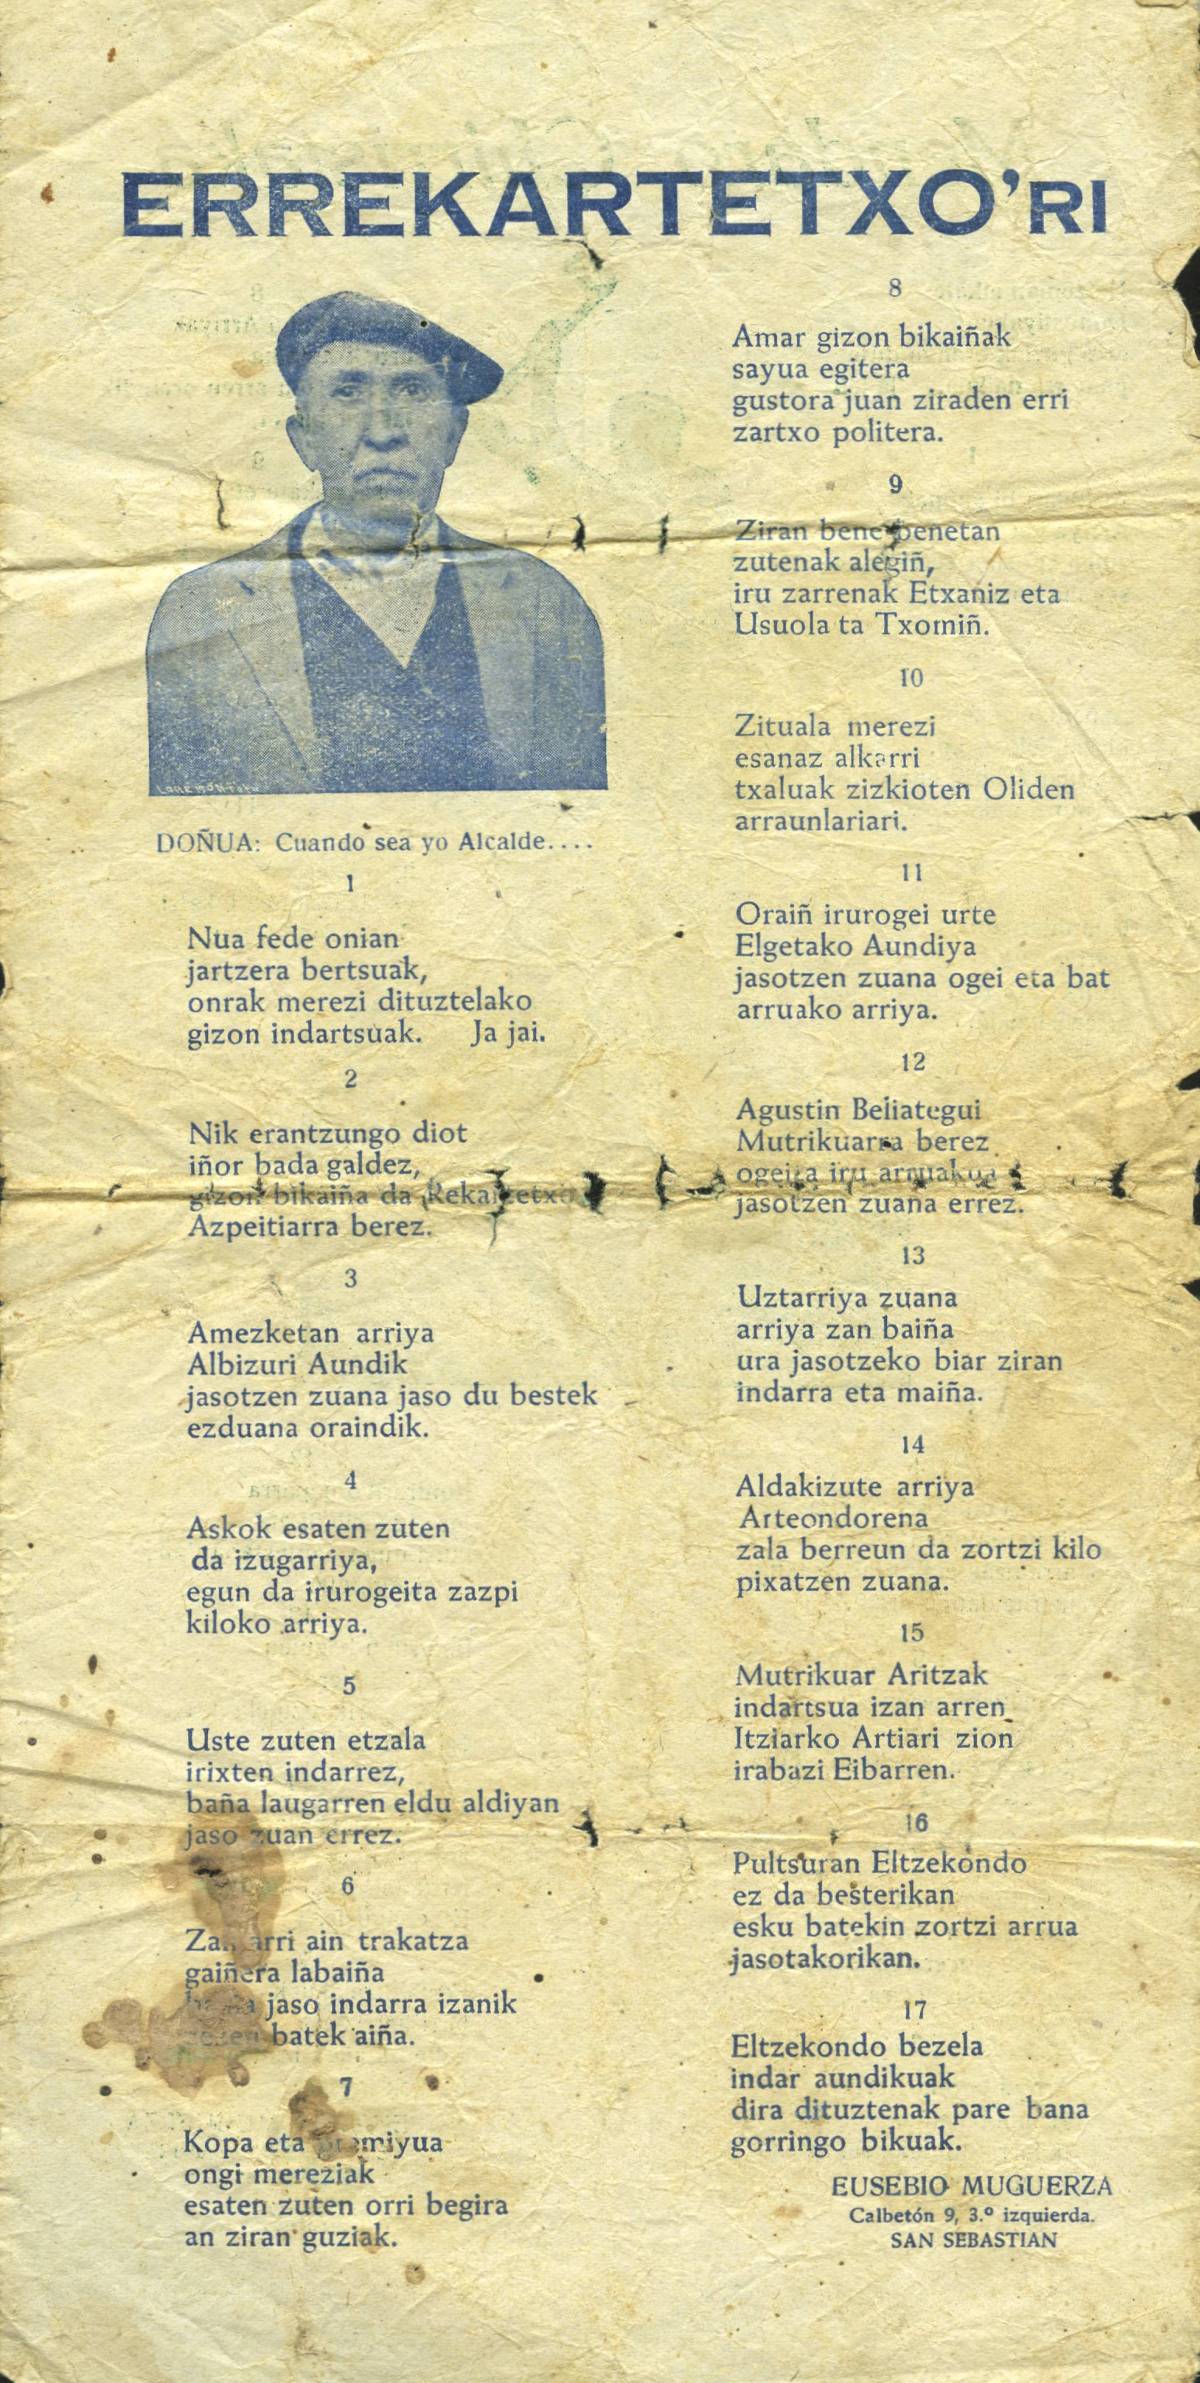 ERREKARTETXO'RI
DOÑUA: Cuando sea yo Alcalde....
1
Nua fede onian
jartzera bertsuak,
onrak merezi dituztelako
gizon indartsuak. Ja jai.
2
Nik erantzungo diot
iñor bada galdez,
gizon bikaiña da Rekartetxo
Azpeitiarra berez.
3
Amezketan arriya
Albizuri Aundik
jasotzen zuana jaso du bestek
ezduana oraindik.
4
Askok esaten zuten
da izugarriya,
egun da irurogeita zazpi
kiloko arriya.
5
Uste zuten etzala
irixten indarrez,
baña laugarren eldu aldiyan
jaso zuan errez.
6
ain trakatza
gaiñera labaiña
jaso indarra izanik
batek aiña.
7
Kopa eta premiyua
ongi mereziak
esaten zuten orri begira
an ziran guziak.
8
Amar gizon bikaiñak
sayua egitera
gustora juan ziraden erri
zartxo politera.
9
Ziran bene benetan
zutenak alegiñ,
iru zarrenak Etxaniz eta
Usuola ta Txomiñ.
10
Zituala merezi
esanaz alkarri
txaluak zizkioten Oliden
arraunlariari.
11
Oraiñ irurogei urte
Elgetako Aundiya
jasotzen zuana ogei eta bat
arruako arriya.
12
Agustin Beliategui
Mutrikuarra berez
ogeita iru arruakua
jasotzen zuana errez.
13
Uztarriya zuana
arriya zan baiña
ura jasotzeko biar ziran
indarra eta maiña.
14
Aldakizute arriya
Arteondorena
zala berreun da zortzi kilo
pixatzen zuana.
15
Mutrikuar Aritzak
indartsua izan arren
Itziarko Artiari zion
irabazi Eibarren.
16
Pultsuran Eltzekondo
ez da besterikan
esku batekin zortzi arrua
jasotakorikan.
17
Eltzekondo bezela
indar aundikuak
dira dituztenak pare bana
gorringo bikuak.
EUSEBIO MUGUERZA
Calbetón 9, 3.º izquierda.
SAN SEBASTIAN